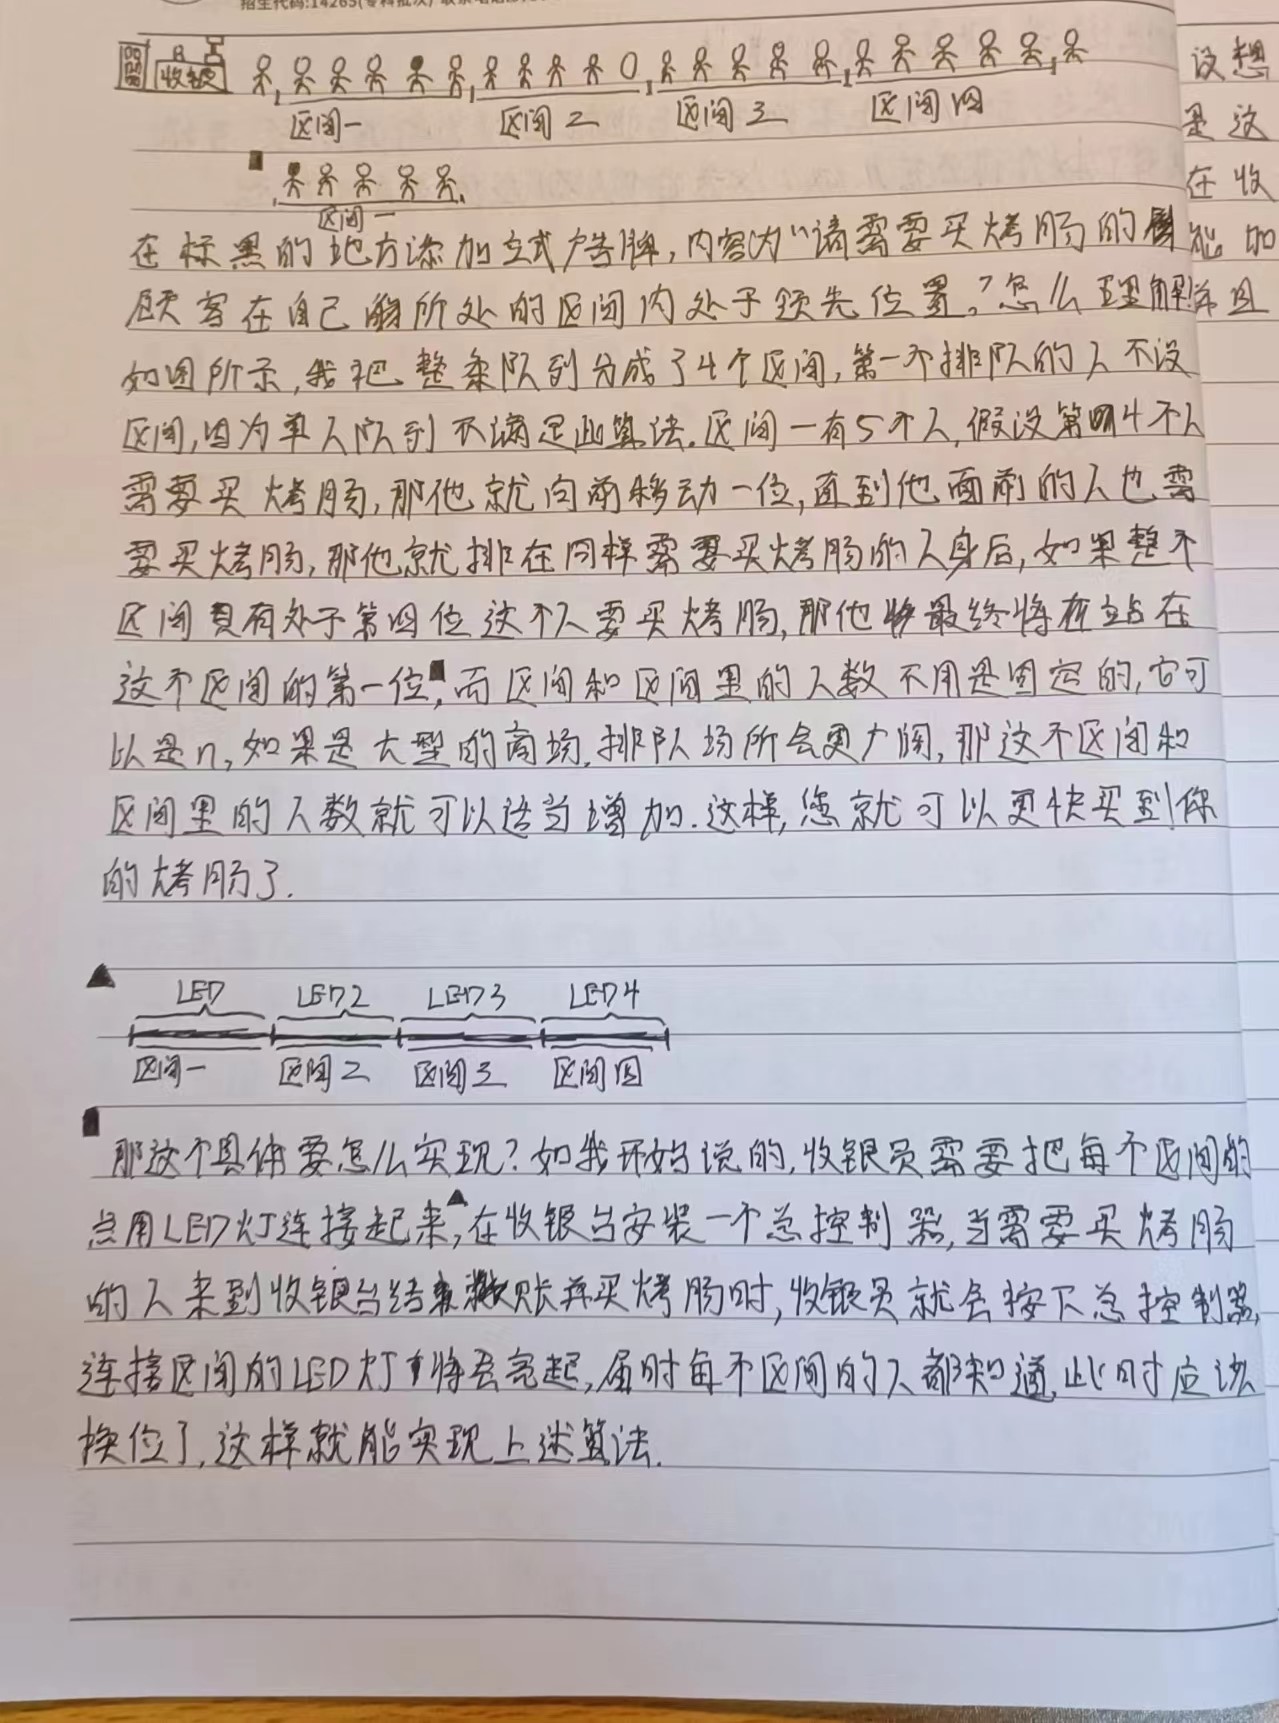 招生代码:14265(专科批次)
收银
区间一 区间2 区间3 区间四
区间一
在标黑的地方添加立式广告牌,内容为“请需要买烤肠的
顾客在自己所处的区间内处于领先位置。”怎么理解
如图所示,我把整条队列分成了4个区间,第一个排队的人不设
区间,因为单人队列不满足此算法.区间一有5个人,假设第4个人
需要买烤肠,那他就向前移动一位,直到他面前的人也需
要买烤肠,那他就排在同样需要买烤肠的人身后,如果整个
区间只有处于第四位这个人要买烤肠,那他最终将在站在
这个区间的第一位,而区间和区间里的人数不用是固定的,它可
以是n,如果是大型的商场,排队场所会更广阔,那这个区间和
区间里的人数就可以适当增加.这样,您就可以更快买到你
的烤肠了.
LED LED2 LED3 LED4
区间一 区间2 区间3 区间四
那这个具体要怎么实现?如我开始说的,收银员需要把每个区间的
点用LED灯连接起来,在收银台安装一个总控制器,当需要买烤肠
的人来到收银台结账并买烤肠时,收银员就会按下总控制器,
连接区间的LED灯将会亮起,届时每个区间的人都知道,此时应该
换位了,这样就能实现上述算法.
设想
是这
在收
能加
并且